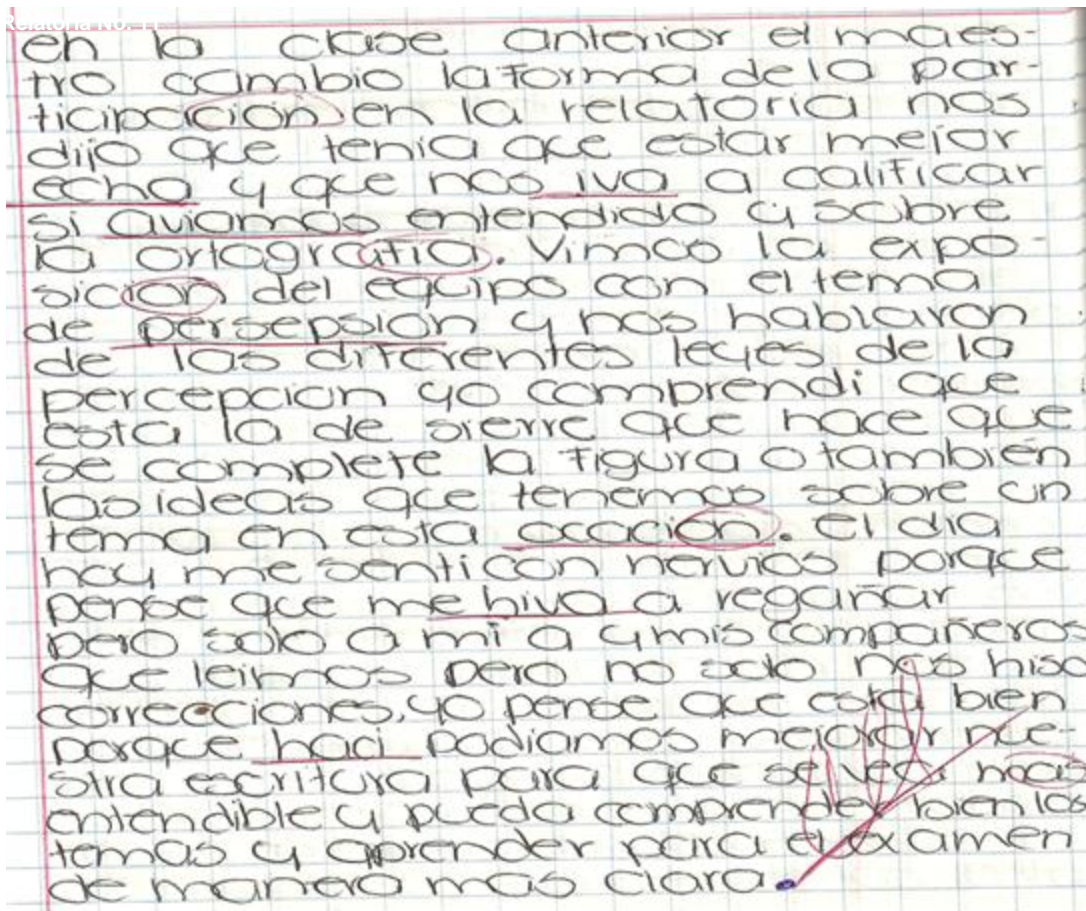 Relatoria No. 11
en la clase anterior el maes-
tro cambio la forma de la par-
ticipación en la relatoria nos
dijo que tenia que estar mejor
echa y que nos iva a calificar
si aviamos entendido y sobre
la ortografia. Vimos la expo-
sicion del equipo con el tema
de persepsion y nos hablaron
de las diferentes leyes de la
percepcion yo comprendi que
esta la de sierre que hace que
se complete la figura o también
las ideas que tenemos sobre un
tema en esta ocacion. el dia
hoy me senti con nervios porque
pense que me hiva a regañar
pero solo a mi a y mis compañeros
que leimos pero no solo nos hiso
correcciones, yo pense que esta bien
porque haci podiamos mejorar nue-
stra escritura para que se vea mas
entendible y pueda comprender bien los
temas y aprender para el examen
de manera mas clara.